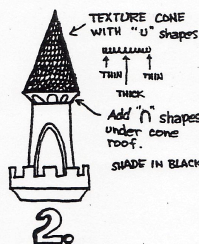 TEXTURE CONE
WITH "U" shapes
THIN THIN
THICK
Add "∩" shapes
under cone
roof.
SHADE IN BLACK
2.